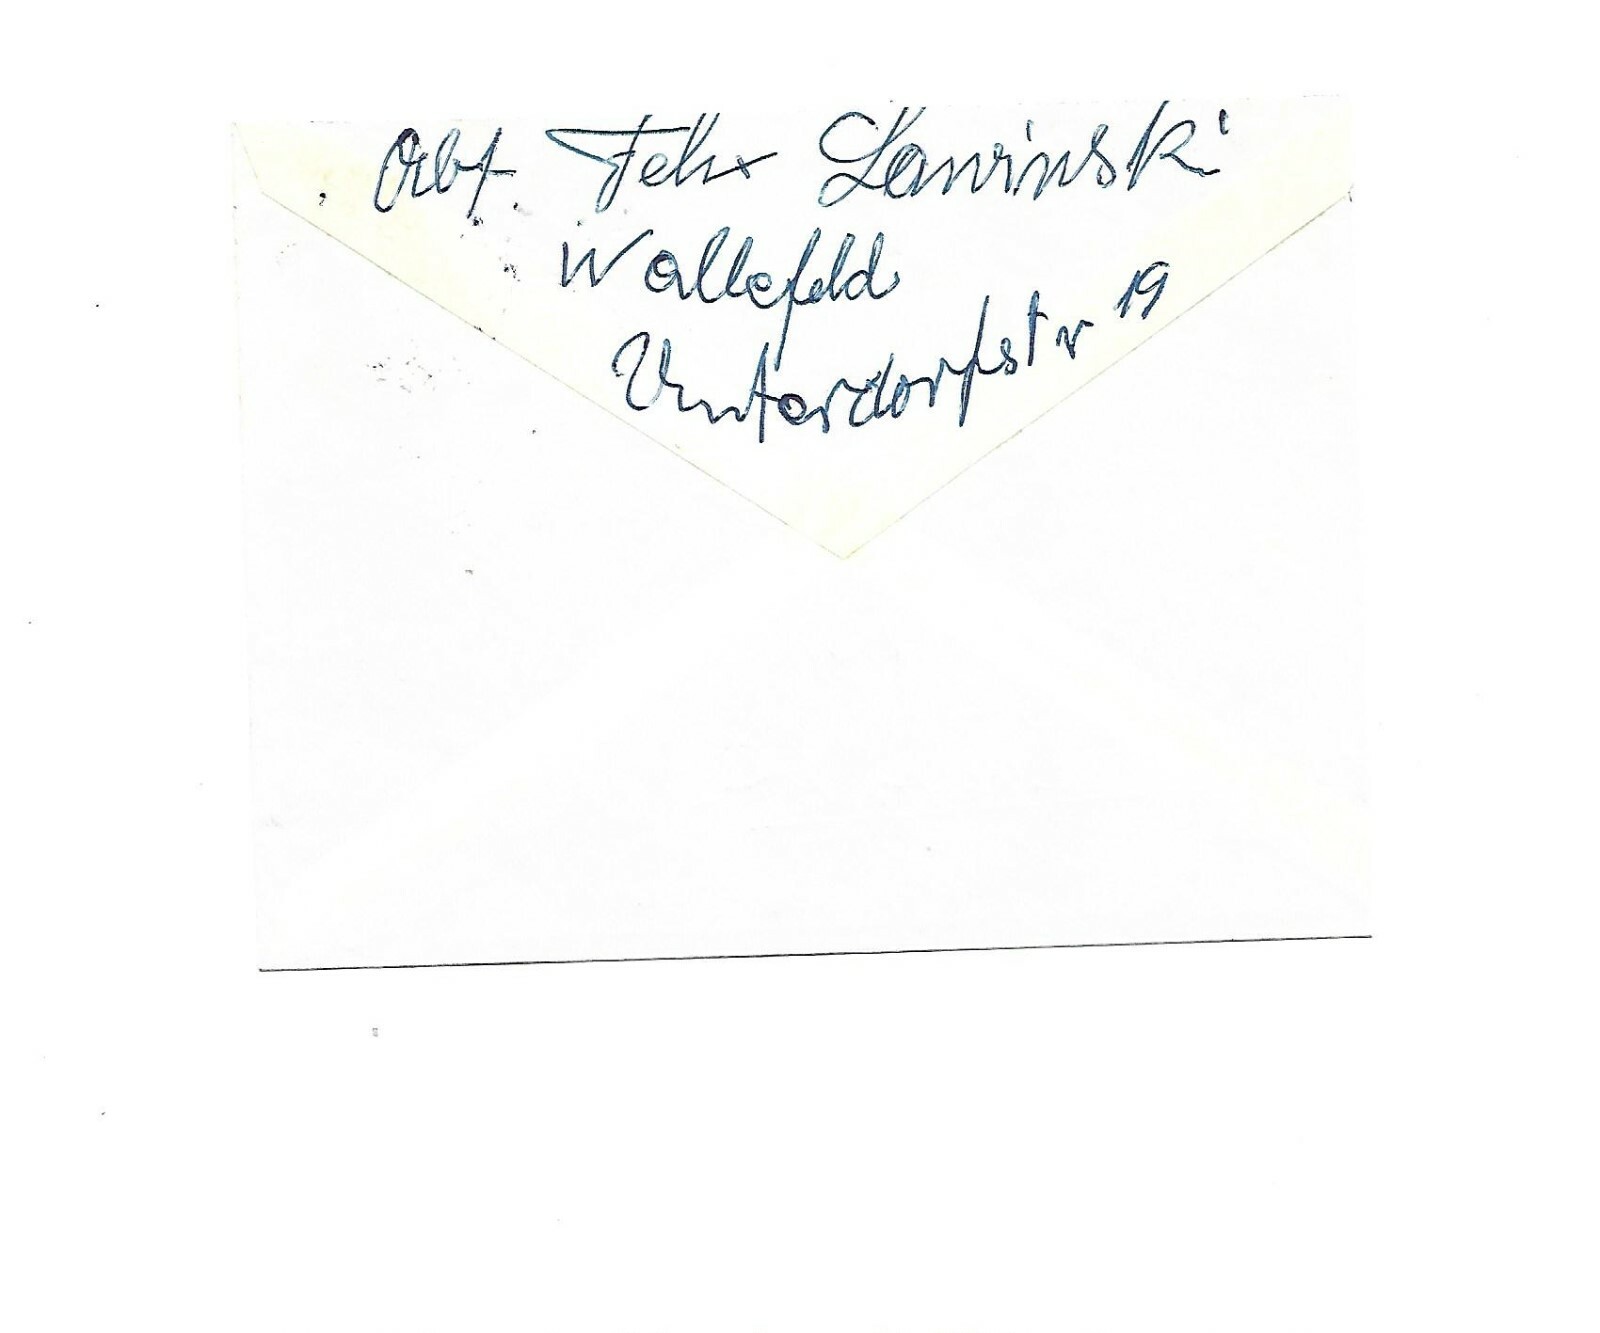 Abs. Felix Lawinski
Wallefeld
Unterdorfstr 19